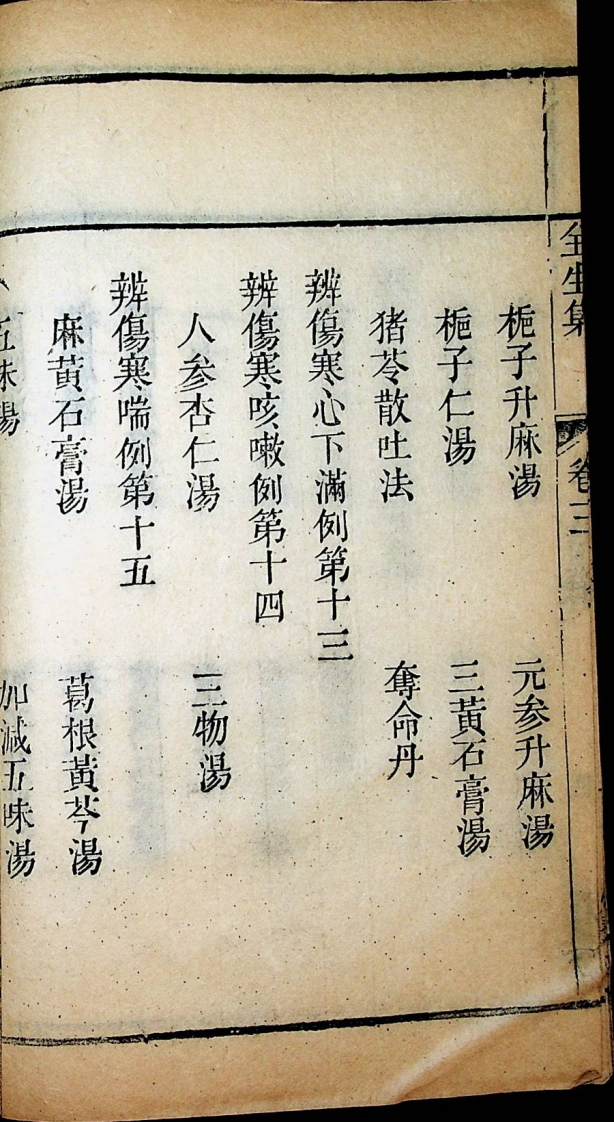 全生集
卷三
梔子升麻湯
元参升麻湯
梔子仁湯
三黃石膏湯
猪苓散吐法
奪命丹
辨傷寒心下滿例第十三
辨傷寒咳嗽例第十四
人参杏仁湯
三物湯
辨傷寒喘例第十五
麻黃石膏湯
葛根黃芩湯
五味湯
加減五味湯